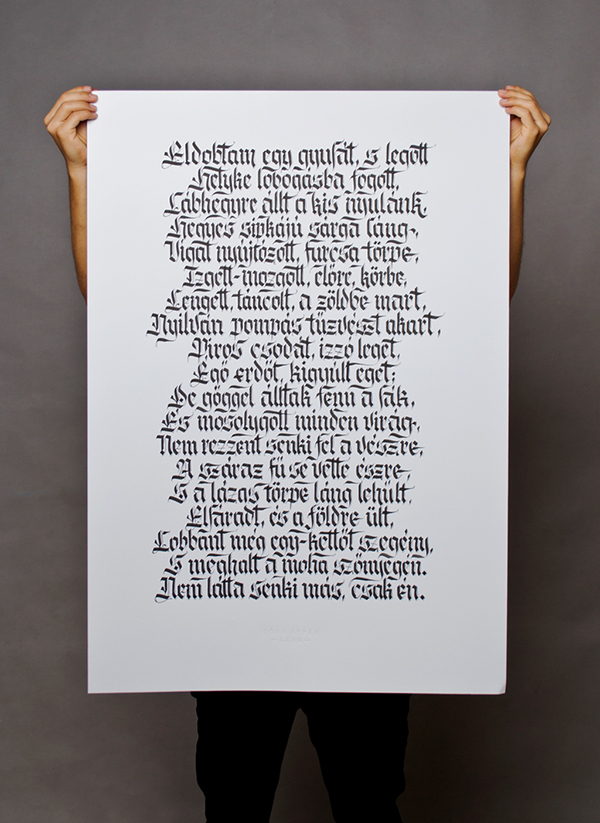 Eldobtam egy gyufát, s legott
Hetyke lobogásba fogott,
Lábhegyre állt a kis nyulánk,
Hegyes sipkájú sárga láng,
Vígat nyújtózott, furcsa törpe,
Izgett-mozgott, előre, körbe,
Lengett, táncolt, a zöldbe mart,
Nyilván pompás tűzvészt akart,
Piros csodát, izzó leget,
Égő erdőt, kigyúlt eget;
De gőggel álltak fenn a fák,
És mosolygott minden virág,
Nem rezzent senki fel a vészre,
A száraz fű se vette észre,
S a lázas törpe láng lehűlt,
Elfáradt, és a földre ült,
Lobbant még egy-kettőt szegény,
S meghalt a moha szőnyegén.
Nem látta senki más, csak én.